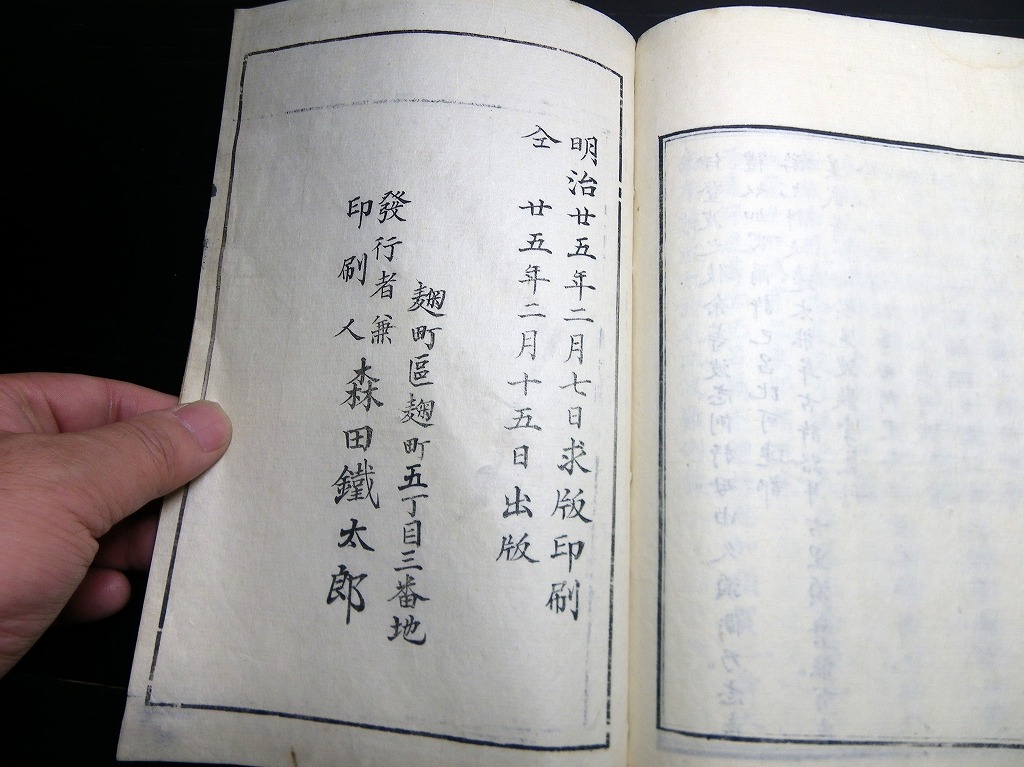 明治廿五年二月七日求版印刷
仝 廿五年二月十五日出版
麹町區麹町五丁目三番地
發行者兼
印刷人
森田鐵太郎